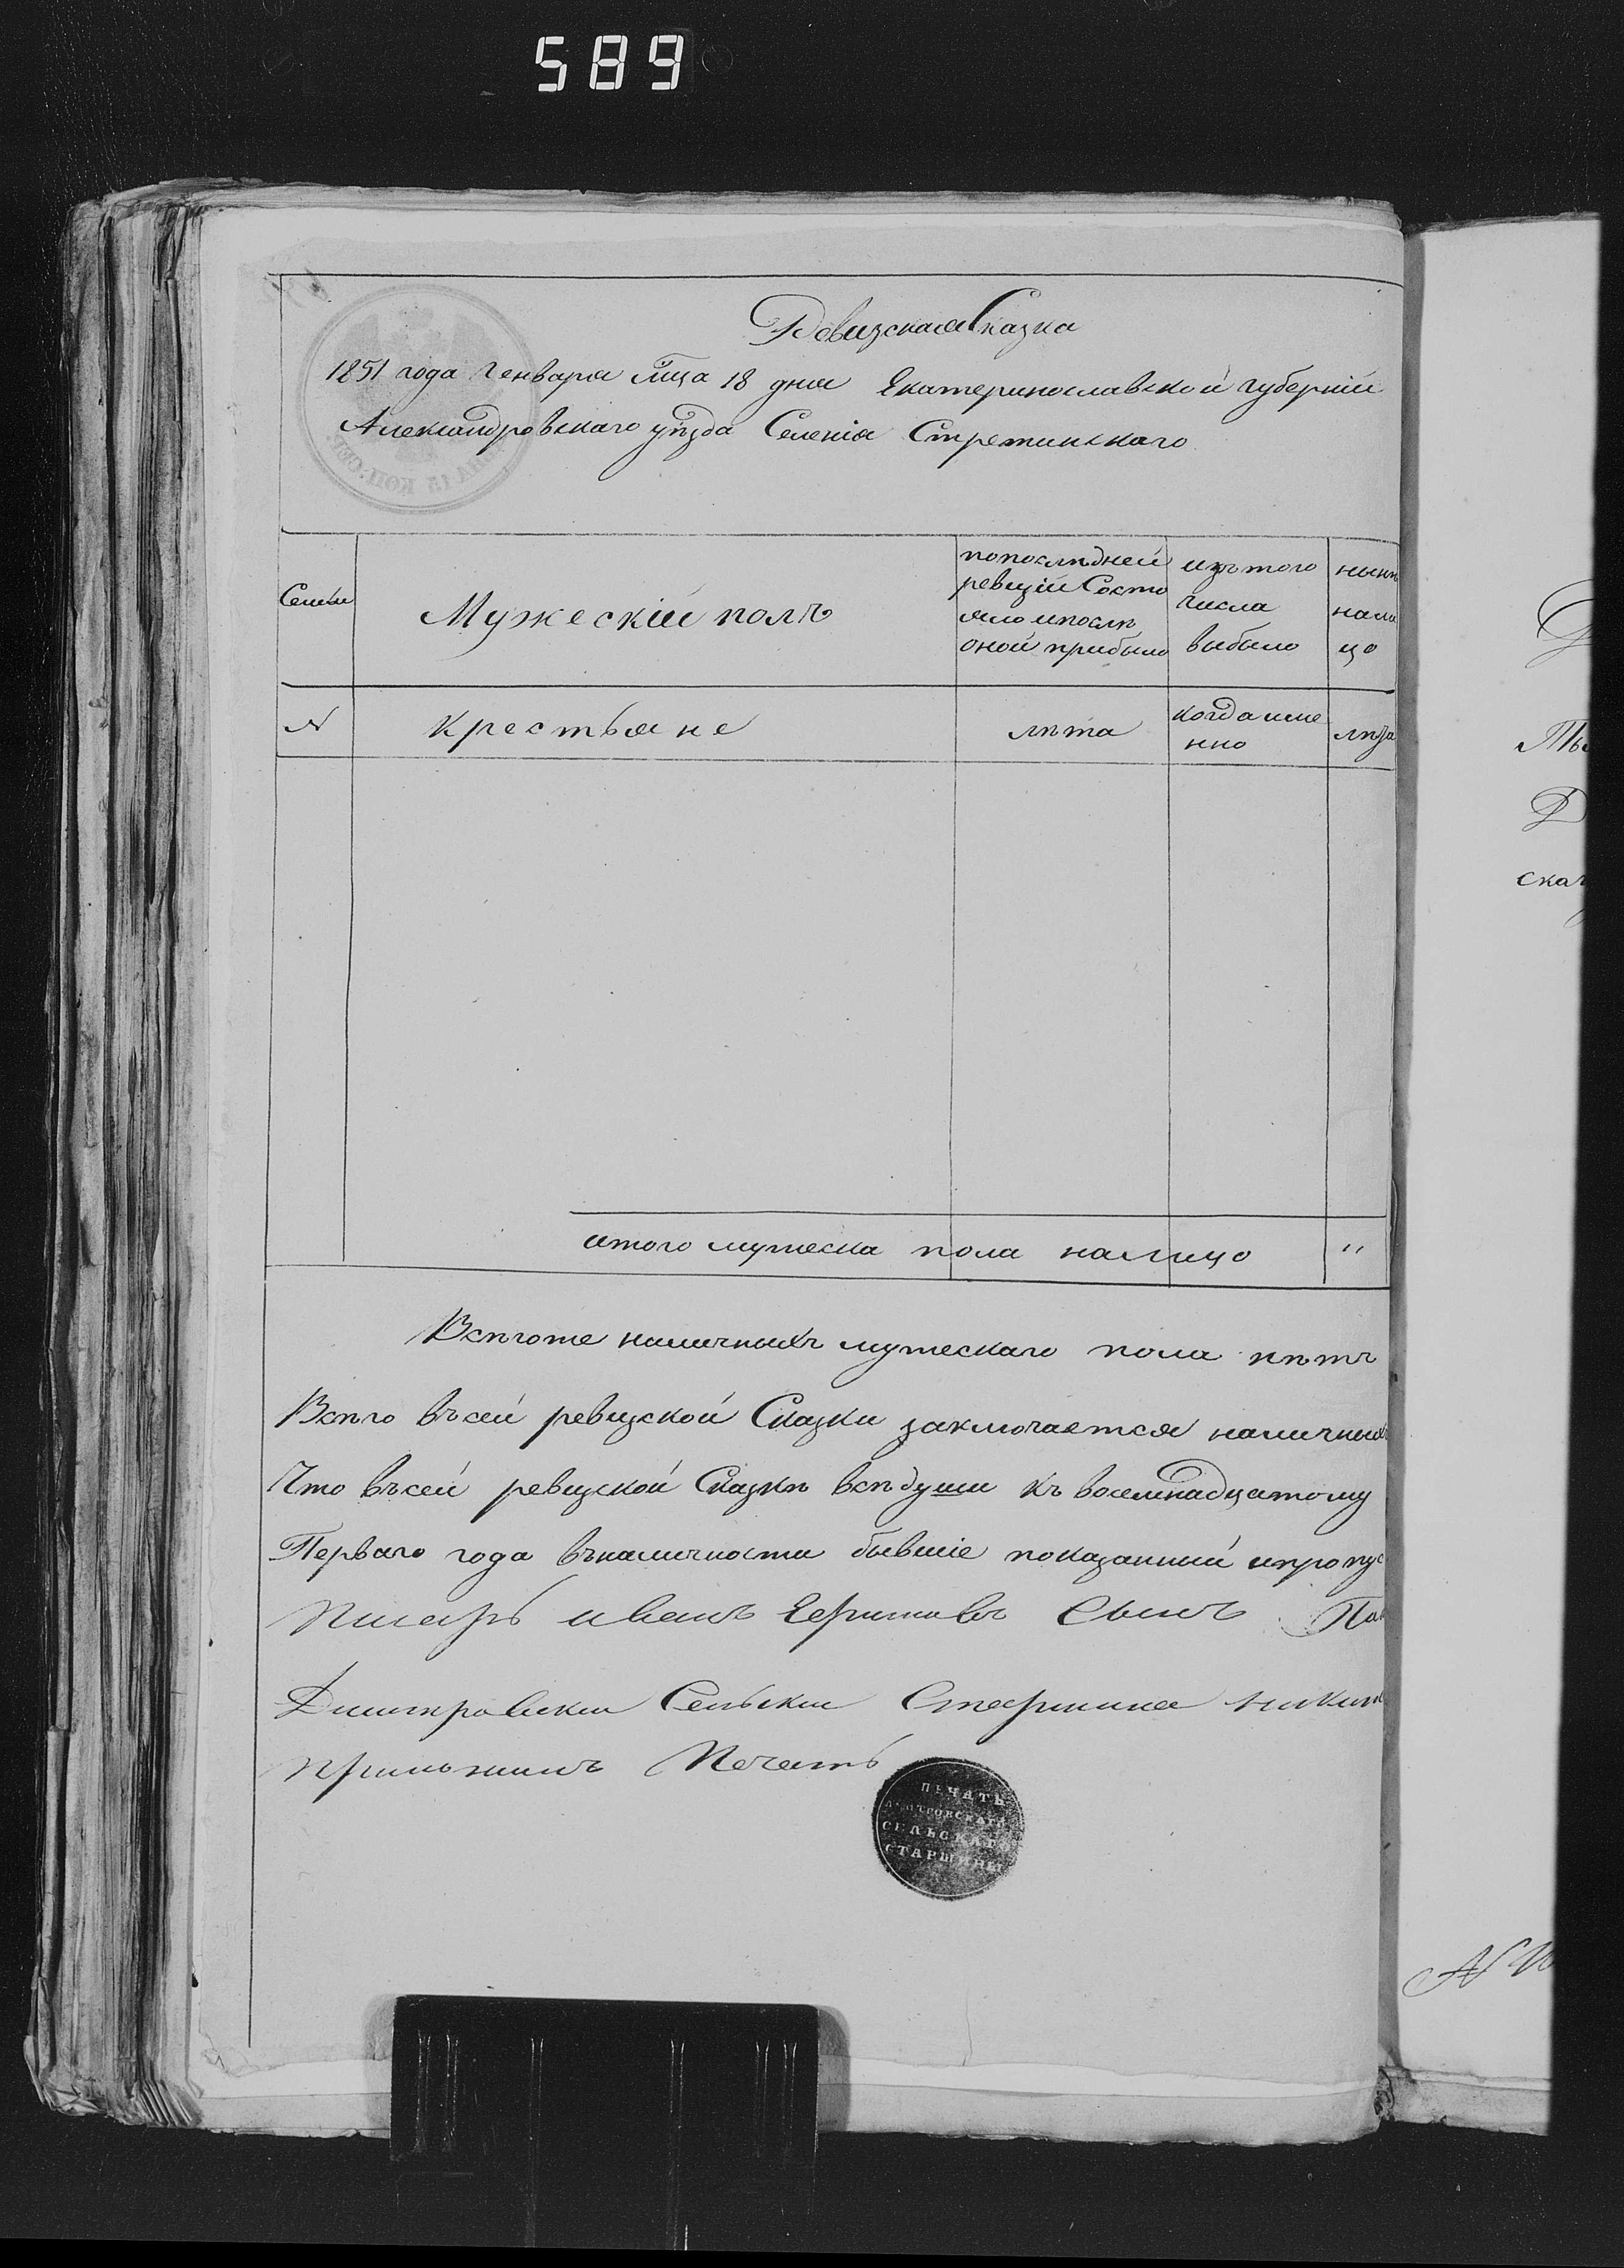 589
Ревизская Сказка
1851 года Генваря мца 18 дня Екатеринославской губерніи
Александровскаго уѣзда Селенія Стретинскаго
Семьи
Мужескій полъ
попослѣдней
ревизіи Состо
яло ипослѣ
оной прибыло
изътого
числа
выбыло
нынѣ
нали
цо
N
Крестьяне
лѣта
когда име
нно
лѣта
итого мужеска пола налицо "
Всѣгоже наличныхъ мужескаго пола нѣтъ
Всѣго въсей ревизской Сказки заключается наличныхъ
Что въсей ревизской Сказкѣ всѣ души къ восемнадцатому
Перваго года въналичности бывшіе показанный ипропус
Писарь иванъ сынъ Пав
Димтровски Сельски Старшина никит
приложилъ Печать
ПЕЧАТЬ
ДМИТРОВСКАГО
СЕЛЬСКАГО
СТАРШИНЫ
скаг